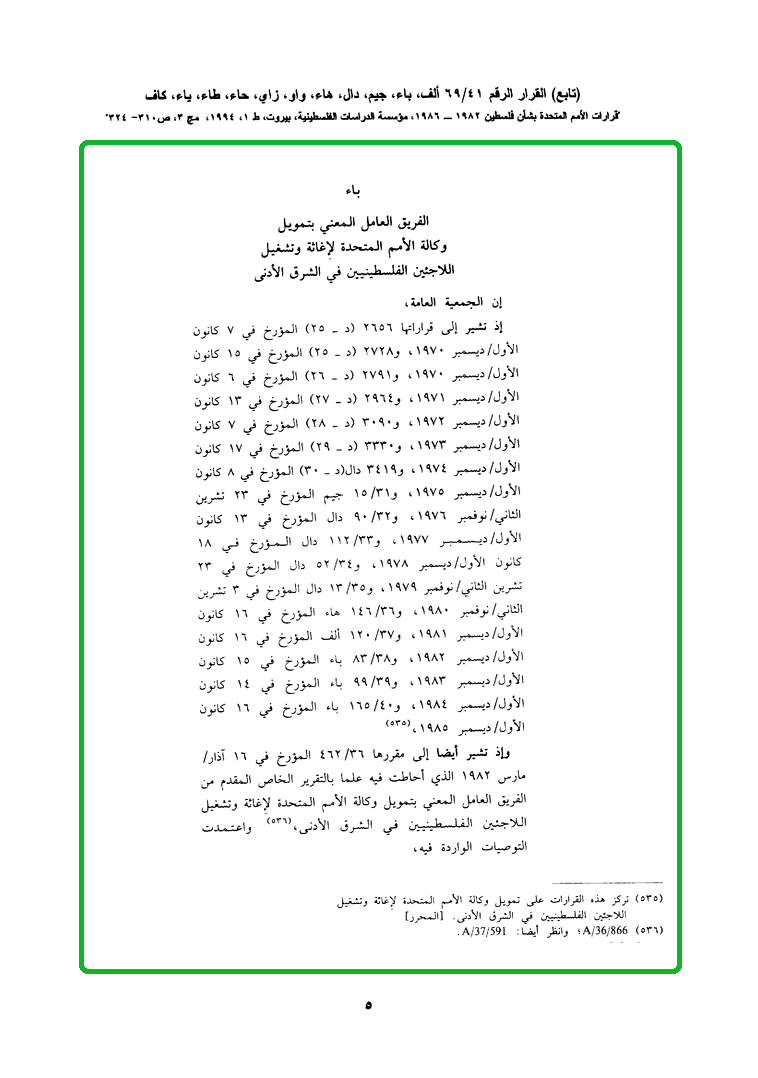 (تابع) القرار الرقم ٦٩/٤١ ألف، باء، جيم، دال، هاء، واو، زاي، حاء، طاء، ياء، كاف
"قرارات الأمم المتحدة بشأن فلسطين ١٩٨٢ ــ ١٩٨٦، مؤسسة الدراسات الفلسطينية، بيروت، ط ١، ١٩٩٤، مج ٣، ص٣١٠- ٣٢٤"
باء
الفريق العامل المعني بتمويل
وكالة الأمم المتحدة لإغاثة وتشغيل
اللاجئين الفلسطينيين في الشرق الأدنى
إن الجمعية العامة،
إذ تشير إلى قراراتها ٢٦٥٦ (د ـ ٢٥) المؤرخ في ٧ كانون
الأول/ديسمبر ١٩٧٠، و٢٧٢٨ (د ـ ٢٥) المؤرخ في ١٥ كانون
الأول/ديسمبر ١٩٧٠، و٢٧٩١ (د ـ ٢٦) المؤرخ في ٦ كانون
الأول/ديسمبر ١٩٧١، و٢٩٦٤ (د ـ ٢٧) المؤرخ في ١٣ كانون
الأول/ديسمبر ١٩٧٢، و٣٠٩٠ (د ـ ٢٨) المؤرخ في ٧ كانون
الأول/ديسمبر ١٩٧٣، و٣٣٣٠ (د ـ ٢٩) المؤرخ في ١٧ كانون
الأول/ديسمبر ١٩٧٤، و٣٤١٩ دال(د ـ ٣٠) المؤرخ في ٨ كانون
الأول/ديسمبر ١٩٧٥، و١٥/٣١ جيم المؤرخ في ٢٣ تشرين
الثاني/نوفمبر ١٩٧٦، و٩٠/٣٢ دال المؤرخ في ١٣ كانون
الأول/ديسمبر ١٩٧٧، و١١٢/٣٣ دال المؤرخ في ١٨
كانون الأول/ديسمبر ١٩٧٨، و٥٢/٣٤ دال المؤرخ في ٢٣
تشرين الثاني/نوفمبر ١٩٧٩، و١٣/٣٥ دال المؤرخ في ٣ تشرين
الثاني/نوفمبر ١٩٨٠، و١٤٦/٣٦ هاء المؤرخ في ١٦ كانون
الأول/ديسمبر ١٩٨١، و١٢٠/٣٧ ألف المؤرخ في ١٦ كانون
الأول/ديسمبر ١٩٨٢، و٨٣/٣٨ باء المؤرخ في ١٥ كانون
الأول/ديسمبر ١٩٨٣، و٩٩/٣٩ باء المؤرخ في ١٤ كانون
الأول/ديسمبر ١٩٨٤، و١٦٥/٤٠ باء المؤرخ في ١٦ كانون
الأول/ديسمبر ١٩٨٥،(٥٣٥)
وإذ تشير أيضا إلى مقررها ٤٦٢/٣٦ المؤرخ في ١٦ آذار/
مارس ١٩٨٢ الذي أحاطت فيه علما بالتقرير الخاص المقدم من
الفريق العامل المعني بتمويل وكالة الأمم المتحدة لإغاثة وتشغيل
اللاجئين الفلسطينيين في الشرق الأدنى،(٥٣٦) واعتمدت
التوصيات الواردة فيه،
(٥٣٥) تركز هذه القرارات على تمويل وكالة الأمم المتحدة لإغاثة وتشغيل
اللاجئين الفلسطينيين في الشرق الأدنى. [المحرر]
(٥٣٦) A/36/866؛ وانظر أيضا: A/37/591.
٥